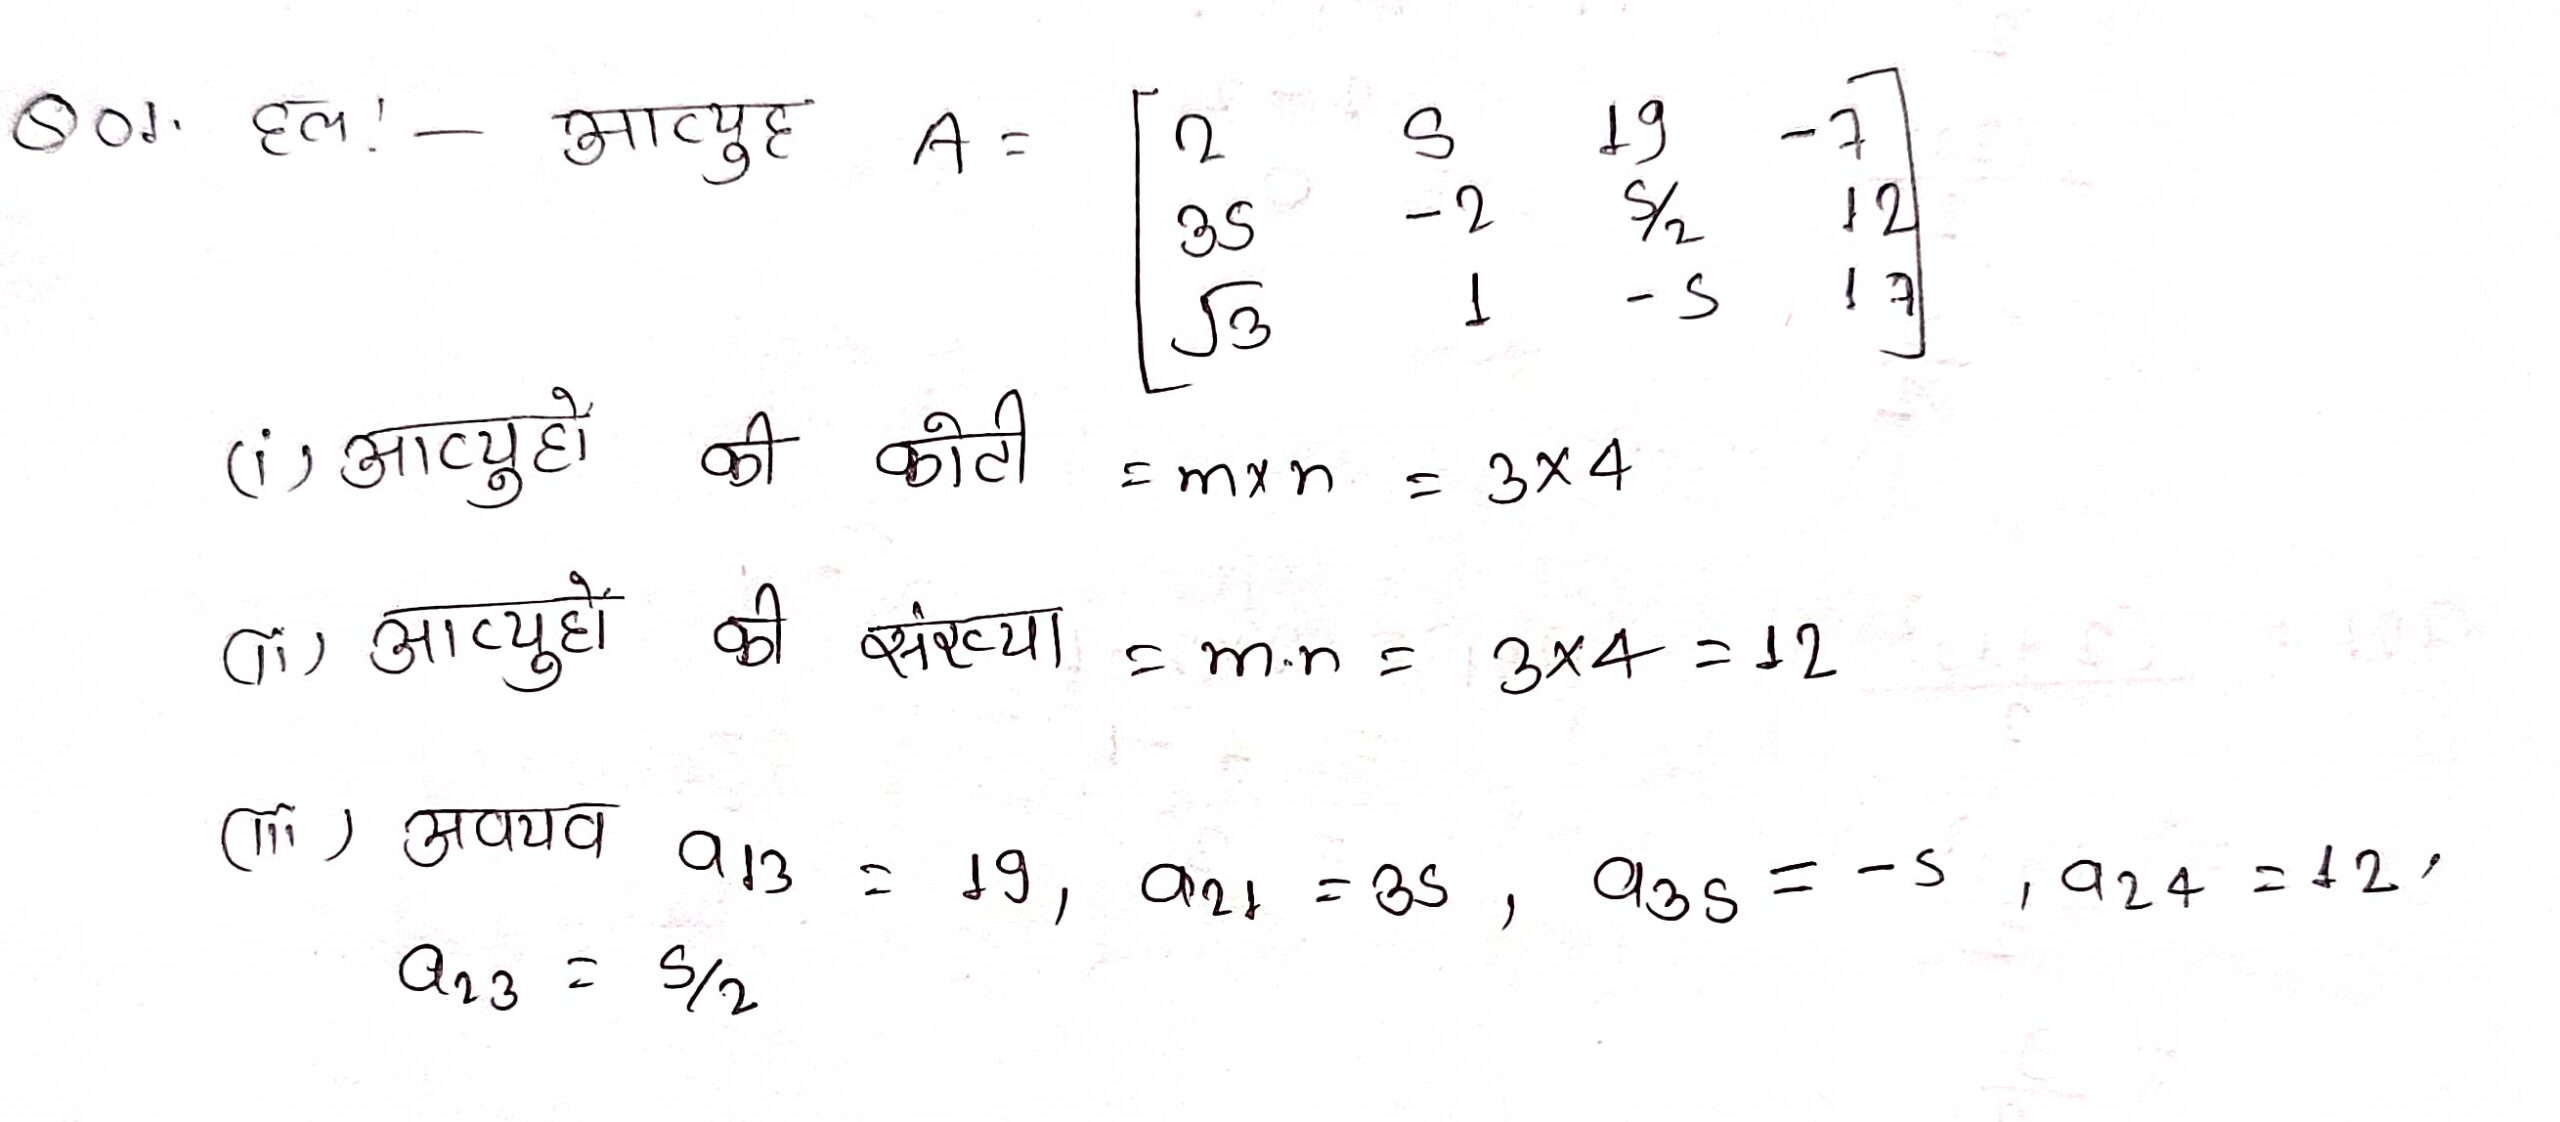 Q01. हल:- आव्युह A = [2 5 19 -7
35 -2 5/2 12
√3 1 -5 17]
(i) आव्युहों की कोटी = m×n = 3×4
(ii) आव्युहों की संख्या = m.n = 3×4 = 12
(iii) अवयव a13 = 19, a21 = 35, a35 = -5, a24 = 12,
a23 = 5/2